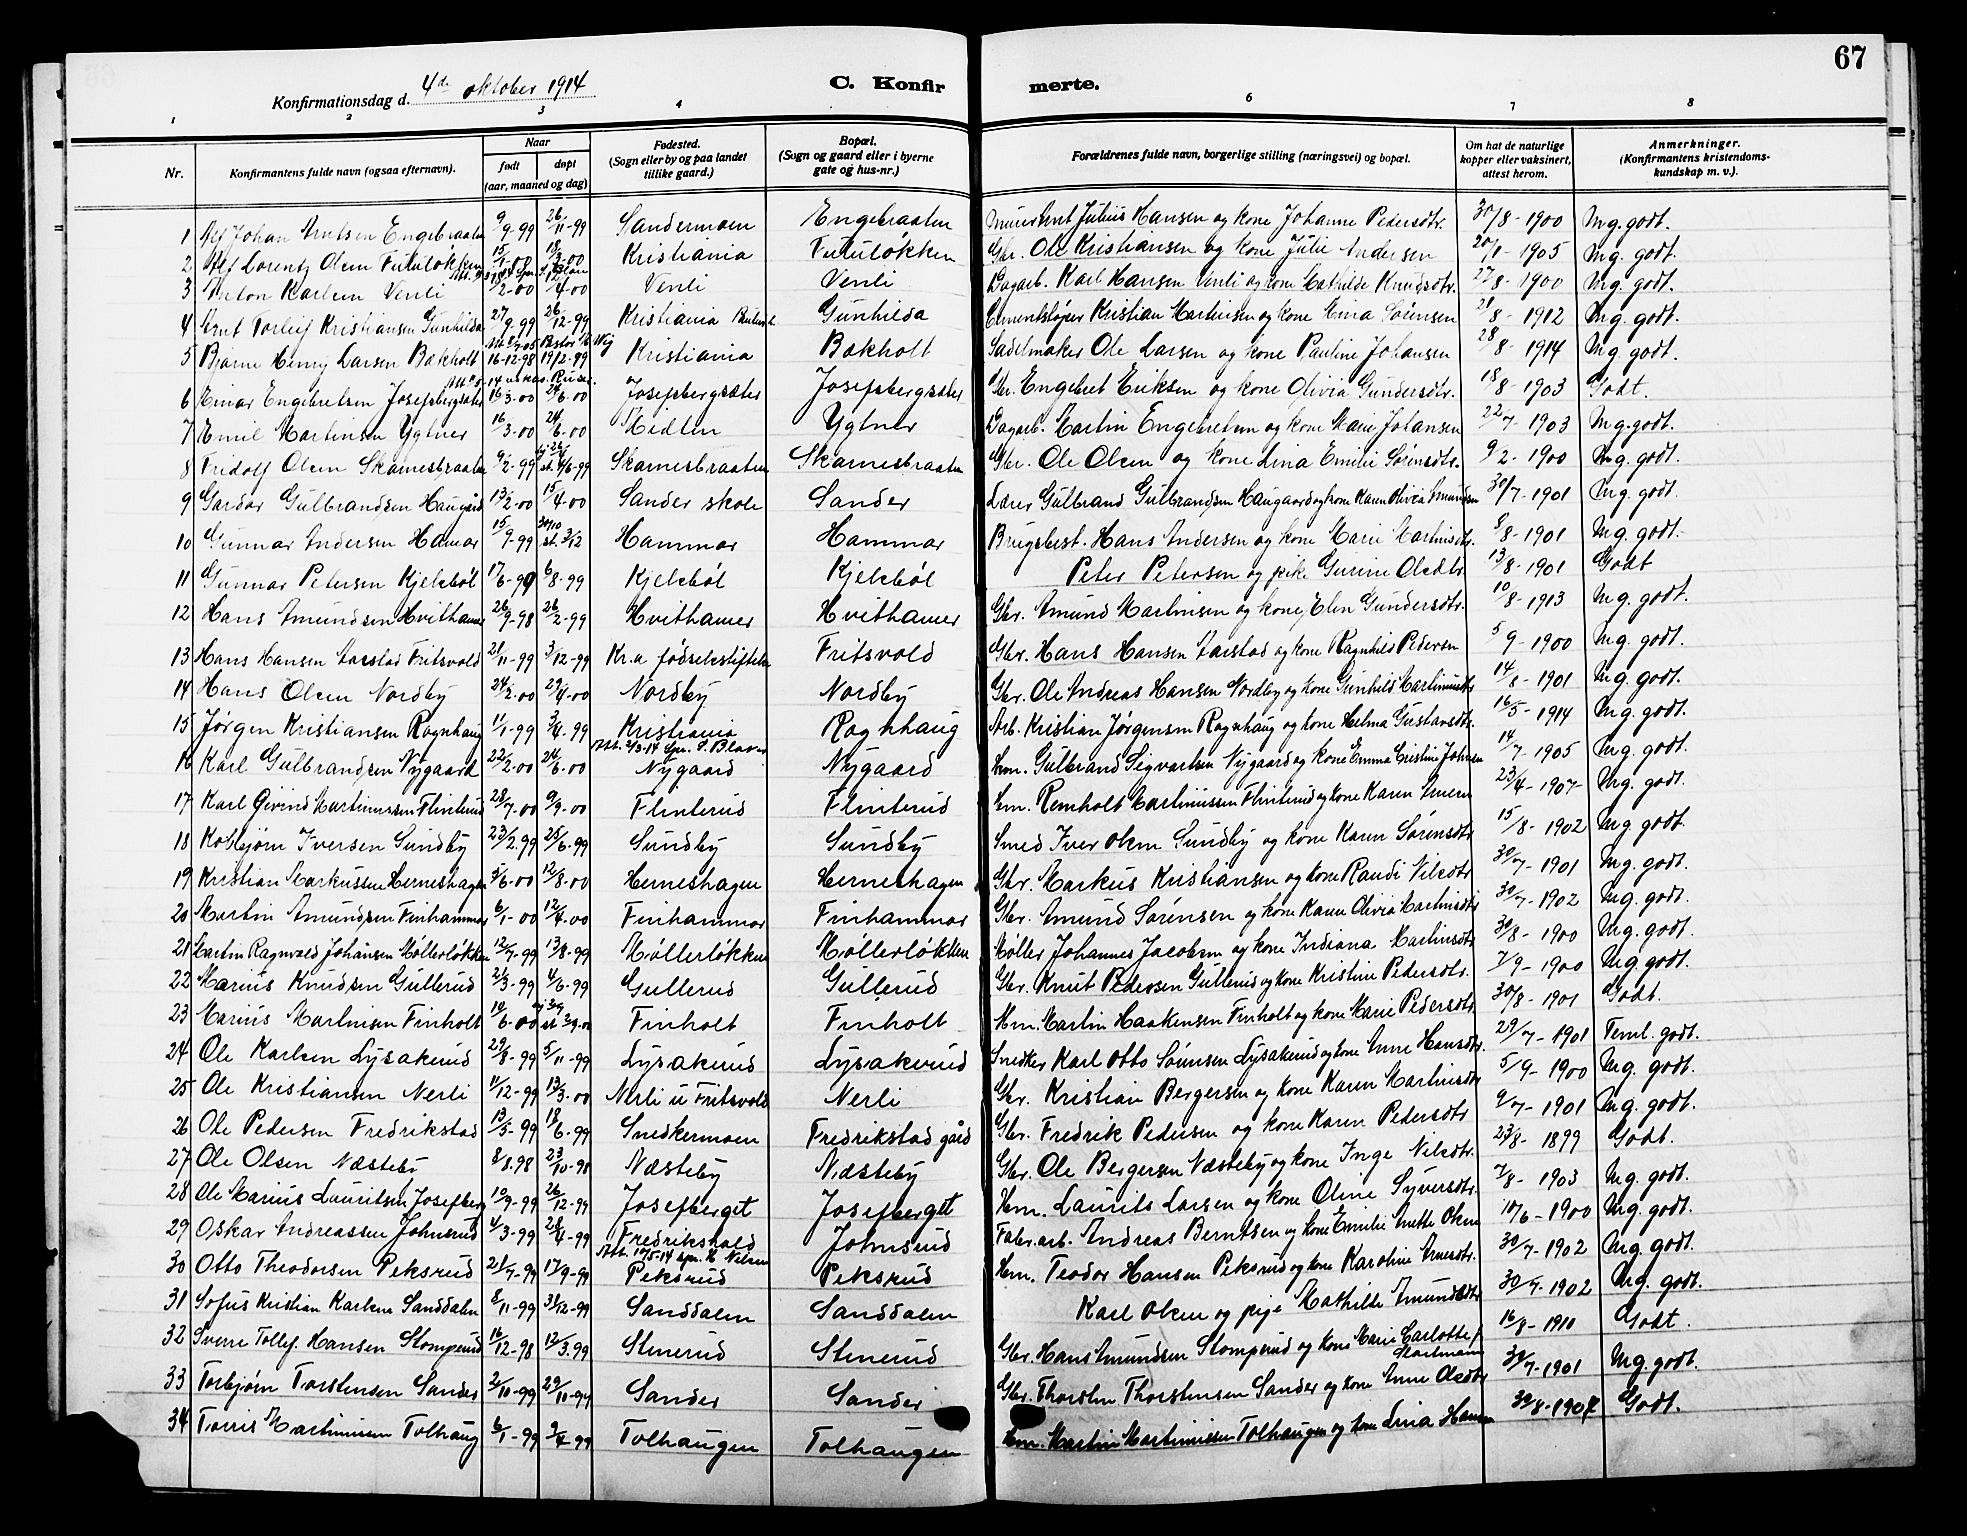 67
Konfirmationsdag d. 4de oktober 1914
C. Konfirmerte.
1 2 3 4 6 7 8
Nr. Konfirmantens fulde navn (ogsaa efternavn). Naar født døpt (aar, maaned og dag) Fødested. (Sogn eller by og paa landet tillike gaard.) Bopæl. (Sogn og gaard eller i byerne gate og hus-nr.) Forældrenes fulde navn, borgerlige stilling (næringsvei) og bopæl. Om hat de naturlige kopper eller vaksinert, attest herom. Anmerkninger. (Konfirmantens kristendoms-kundskap m. v.).
1 Alf Johan Arntsen Engebraaten 9/9-99 26/11-99 Sandermoen Engebraaten Arnt Julius Hansen og kone Johanne Pedersdtr. 30/8-1900 Mg. godt.
2 Alf Lorentz Olsen 15/1-00 18/3-00 Kristiania Gbr. Ole Kristiansen og kone Julie Andersen 20/1-1905 Mg. godt.
3 Anton Karlsen Venli 2-00 4-00 Venli Venli Dagarb. Karl Hansen Venli og kone Mathilde Knudsdtr. 27/8-1900 Mg. godt.
4 Arnt Torleif Kristiansen Gunhilda 27/9-99 26/12-99 Kristiania Gunhilda Cementstøper Kristian Martinsen og kone Mina Sørensen 21/8-1912 Mg. godt.
5 Bjarne Henry Larsen Bakholt 16-12-98 19/2-99 Kristiania Bakholt Sadelmaker Ole Larsen og kone Pauline Johansen 28/8-1914 Mg. godt.
6 Einar Engebretsen Josefsbergsæter 16/3-00 24/6-00 Josefsbergsæter Josefsbergsæter Gbr. Engebret Eriksen og kone Olivia Gundersdtr. 18/8-1903 Godt.
7 Emil Martinsen Ygtner 16/3-00 24/6-00 Midten Ygtner Dagarb. Martin Engebretsen og kone Marie Johansen 22/7-1903 Mg. godt.
8 Fridolf Olsen Skamesbraaten 9/2-99 Skamesbraaten Skamesbraaten Gbr. Ole Olsen og kone Lina Emilie Sørensdtr. 9/2-1900 Mg. godt.
9 Gardar Gulbrandsen Haugård 13/2-00 15/4-00 Sander skole Sander Lærer Gulbrand Gulbrandsen Haugaard og kone Karen Olivia Amundsen 30/7-1901 Mg. godt.
10 Gunnar Andersen Hamar 15/9-99 30/10 st. 3/12 Hammar Hammar Brugsbest. Hans Andersen og kone Marie Martinsdtr. 8/8-1901 Mg. godt.
11 Gunnar Petersen Kjelsbøl 17/6-99 6/8-99 Kjelsbøl Kjelsbøl Peter Petersen og pike Gurine Olsdtr. 13/8-1901 Godt
12 Hans Amundsen Hvithamer 26/9-98 26/2-99 Hvithamer Hvithamer Gbr. Amund Martinsen og kone Elen Gundersdtr. 10/8-1913 Mg. godt.
13 Hans Hansen Aarstad Fritsvold 21/11-99 3/12-99 Kr.a fødselsstiftelse Fritsvold Gbr. Hans Hansen Aarstad og kone Ragnhild Pedersen 5/9-1900 Mg. godt.
14 Hans Olsen Nordby 24/2-00 29/4-00 Nordby Nordby Gbr. Ole Andreas Hansen Nordby og kone Gunhild Martinusdtr 14/8-1901 Mg. godt.
15 Jørgen Kristiansen Rognhaug 11/1-99 3/4-99 Kristiania Rognhaug Arb. Kristian Jørgensen Rognhaug og kone Helma Gustavsdtr. 16/5-1914 Mg. godt.
16 Karl Gulbrandsen Nygaard 22/2-00 24/6-00 Nygaard Nygaard Hm. Gulbrand Sigvartsen Nygaard og kone Emma Cristine Johnsen 14/7-1905 Mg. godt.
17 Karl Eivind Martinussen Flinterud 28/7-00 9/9-00 Flinterud Flinterud Hm. Remholt Martinussen Flinterud og kone Karen Arnesen 23/4-1907 Mg. godt.
18 Kolbjørn Iversen Sundby 23/2-99 25/6-99 Sundby Sundby Smed Iver Olsen Sundby og kone Karen Sørensdtr. 15/8-1902 Mg. godt.
19 Kristian Markussen Herneshagen 3/6-00 12/8-00 Herneshagen Herneshagen Gbr. Markus Kristiansen og kone Randi Nilsdtr. 30/7-1901 Mg. godt.
20 Martin Amundsen Finhammer 6/1-00 12/4-00 Finhammer Finhammer Gbr. Amund Sørensen og kone Karen Olivia Martinsdtr 30/7-1902 Mg. godt.
21 Martin Ragnvald Johansen Møllerløkken 12/7-99 13/8-99 Møllerløkken Møllerløkken Møller Johannes Jacobsen og kone Indiana Martinsdtr 30/8-1900 Mg. godt.
22 Marius Knudsen Gullerud 2/3-99 4/6-99 Gullerud Gullerud Gbr. Knut Pedersen Gullerud og kone Kristine Pedersdtr. 7/9-1900 Mg. godt.
23 Marius Martinsen Finholt 10/6-00 Finholt Finholt Hm. Martin Haakensen Finholt og kone Marie Pedersdtr. 30/8-1901 Godt.
24 Ole Karlsen Lysakerud 29/8-99 5/11-99 Lysakerud Lysakerud Snedker Karl Otto Sørensen Lysakerud og kone Anne Hansdtr. 29/7-1901 Teml. godt.
25 Ole Kristiansen Nerli 11/12-99 13/3-00 Nerli u Fritsvold Nerli Gbr. Kristian Bergersen og kone Karen Martinsdtr 5/9-1900 Mg. godt.
26 Ole Pedersen Fredrikstad 13/5-99 18/6-99 Snedkermoen Fredrikstad gård Gbr. Fredrik Pedersen og kone Karen Pedersdtr 9/7-1901 Mg. godt.
27 Ole Olsen Næsteby 8/8.98 23/10-98 Næsteby Næsteby Gbr. Ole Bergersen Næsteby og kone Inge Nilsdtr. 23/8-1899 Godt.
28 Ole Marius Lauritsen Josefberg 10/9-99 26/12-99 Josefberget Josefberget Hm. Laurits Larsen og kone Oline Syversdtr. 7/8-1903 Mg. godt.
29 Oskar Andreassen Johnsrud 4/3-99 28/4-99 Fredrikshald Johnsrud Fabr. arb. Andreas Berntsen og kone Emilie Anette Olsen 10/6-1900 Mg. godt.
30 Otto Theodorsen Peksrud 21/7-99 17/9-99 Peksrud Peksrud Hm. Teodor Hansen Peksrud og kone Karoline Arnesdtr. 30/7-1902 Mg. godt.
31 Sofus Kristian Karlsen Sanddalen 8/11-99 31/12-99 Sanddalen Sanddalen Karl Olsen og pige Mathilde Amundsdtr 30/7-1902 Mg. godt.
32 Sverre Tollef. Hansen Stomperud 16/12-98 12/3.99 Stenerud Stenerud Gbr. Hans Amundsen Stomperud og kone Marie Carlotte 16/8-1910 Godt.
33 Torbjørn Torstensen Sander 2/10-99 29/10-99 Sander Sander Gbr. Thorsten Thorstensen Sander og kone Anne Olsdtr 30/7-1901 Mg. godt.
34 Torris Martinussen Tolhaug 6/1-99 3/4-99 Tolhaugen Tolhaugen Hm. Martin Martinissen Tolhaugen og kone Lina Hansen Godt.